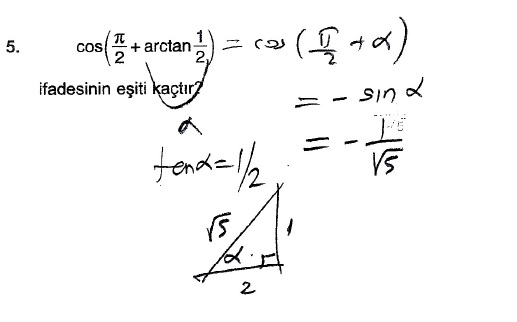 5. cos(π/2 + arctan 1/2) = cos (π/2 + α)
ifadesinin eşiti kaçtır?
= - sin α
α
= - 1/√5
tanα = 1/2
√5
1
α
2